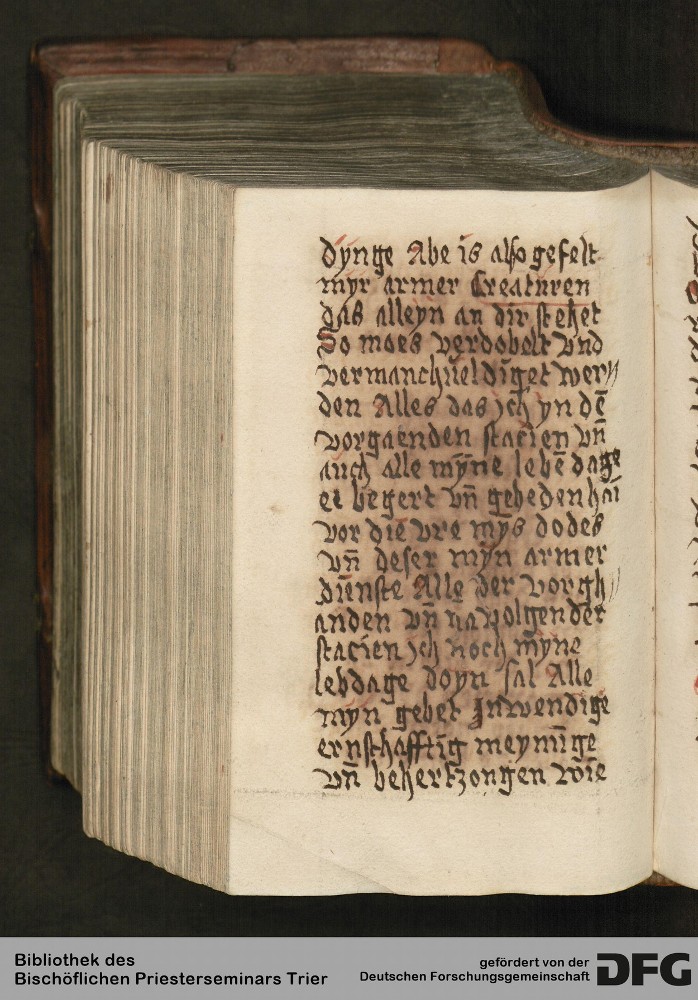 dynge Abe is also gefelt
myr armer Creaturen
das alleyn an dir stehet
So moes verdobelt vnd
vermanchueldiget wer//
den Alles das ich yn dē
vorgaenden stacien vn̄
auch alle myne lebēdage
ei begert vn̄ gebeden hāi
vor die vre mȳs dodes
vn̄ deser myn armer
dienste Alle der vorgh//
anden vn̄ navolgender
stacien ich noch myne
lebdage doyn sal Alle
myn gebet Inwendige
ernsthafftig meynūge
vn̄ behertzongen wie
Bibliothek des
Bischöflichen Priesterseminars Trier
gefördert von der
Deutschen Forschungsgemeinschaft DFG